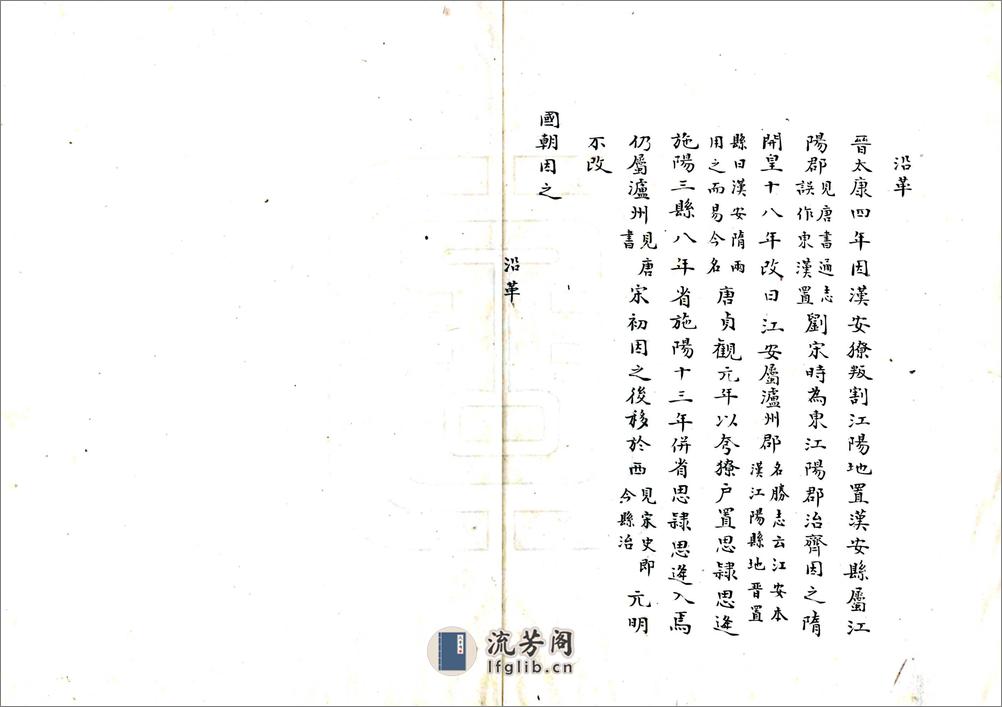 沿革
晉太康四年因漢安獠叛割江陽地置漢安縣屬江
陽郡見唐書通志誤作東漢置劉宋時為東江陽郡治齊因之隋
開皇十八年改曰江安屬瀘州郡名勝志云江安本漢江陽縣地晉置
縣曰漢安隋雨用之而易今名唐貞觀元年以夸獠戶置思隷思逄
施陽三縣八年省施陽十三年併省思隷思逄入焉
仍屬瀘州見唐書宋初因之後移於西見宋史即今縣治元明
不改
國朝因之
沿革
流芳阁
lfglib.cn